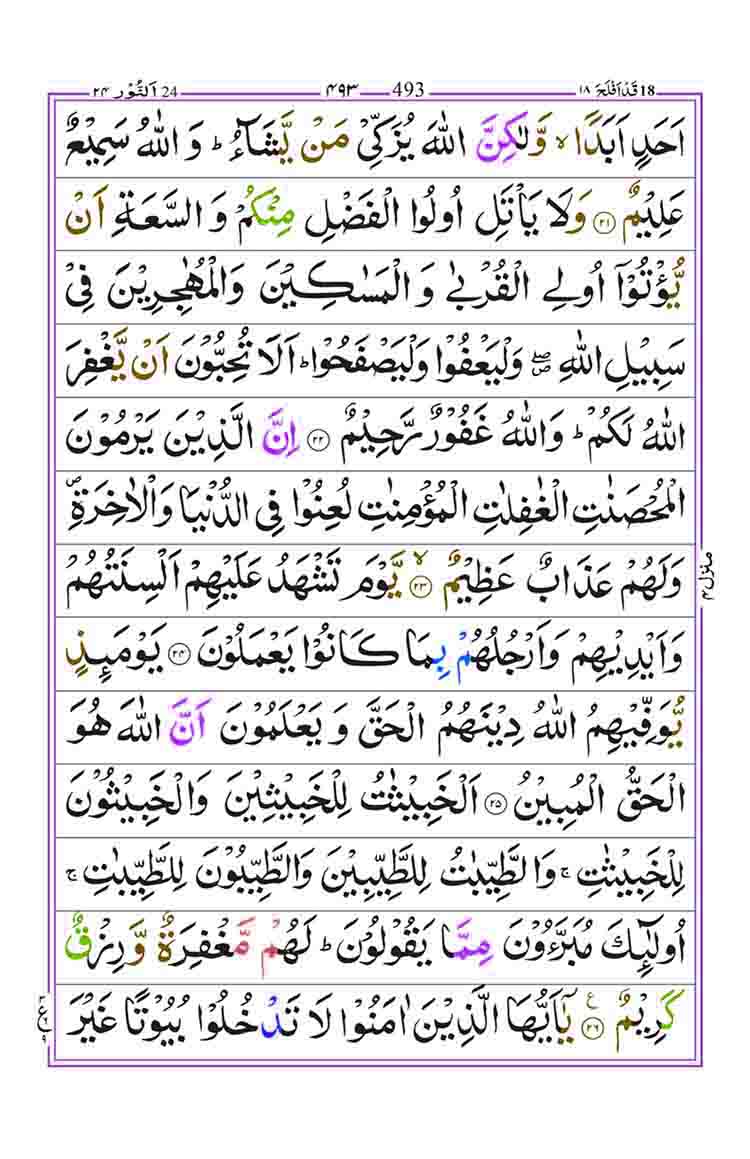 18 قَدْ اَفْلَحَ ١٨ 493 ۴۹۳ 24 اَلنُّوْر ۲۴
اَحَدٍ اَبَدًا ۙ وَّلٰـكِنَّ اللّٰهَ يُزَكِّىْ مَنْ يَّشَآءُ ؕ وَ اللّٰهُ سَمِيْعٌ
عَلِيْمٌ ۝۲۱ وَلَا يَاْتَلِ اُولُوا الْفَضْلِ مِنْكُمْ وَ السَّعَةِ اَنْ
يُّؤْتُوْۤا اُولِى الْقُرْبٰى وَ الْمَسٰكِيْنَ وَالْمُهٰجِرِيْنَ فِىْ
سَبِيْلِ اللّٰهِ ۖ وَلْيَعْفُوْا وَلْيَصْفَحُوْا ؕ اَلَا تُحِبُّوْنَ اَنْ يَّغْفِرَ
اللّٰهُ لَكُمْ ؕ وَاللّٰهُ غَفُوْرٌ رَّحِيْمٌ ۝۲۲ اِنَّ الَّذِيْنَ يَرْمُوْنَ
الْمُحْصَنٰتِ الْغٰفِلٰتِ الْمُؤْمِنٰتِ لُعِنُوْا فِى الدُّنْيَا وَالْاٰخِرَةِ ۪
وَلَهُمْ عَذَابٌ عَظِيْمٌ ۙ ۝۲۳ يَّوْمَ تَشْهَدُ عَلَيْهِمْ اَلْسِنَتُهُمْ
وَاَيْدِيْهِمْ وَاَرْجُلُهُمْ بِمَا كَانُوْا يَعْمَلُوْنَ ۝۲۴ يَوْمَٮِٕذٍ
يُّوَفِّيْهِمُ اللّٰهُ دِيْنَهُمُ الْحَقَّ وَ يَعْلَمُوْنَ اَنَّ اللّٰهَ هُوَ
الْحَقُّ الْمُبِيْنُ ۝۲۵ اَلْخَبِيْثٰتُ لِلْخَبِيْثِيْنَ وَالْخَبِيْثُوْنَ
لِلْخَبِيْثٰتِ ۚ وَالطَّيِّبٰتُ لِلطَّيِّبِيْنَ وَالطَّيِّبُوْنَ لِلطَّيِّبٰتِ ۚ
اُولٰٓٮِٕكَ مُبَرَّءُوْنَ مِمَّا يَقُوْلُوْنَ ؕ لَهُمْ مَّغْفِرَةٌ وَّرِزْقٌ
كَرِيْمٌ ۝۲۶ ع يٰۤاَيُّهَا الَّذِيْنَ اٰمَنُوْا لَا تَدْخُلُوْا بُيُوْتًا غَيْرَ
منزل ۴
ع ۹